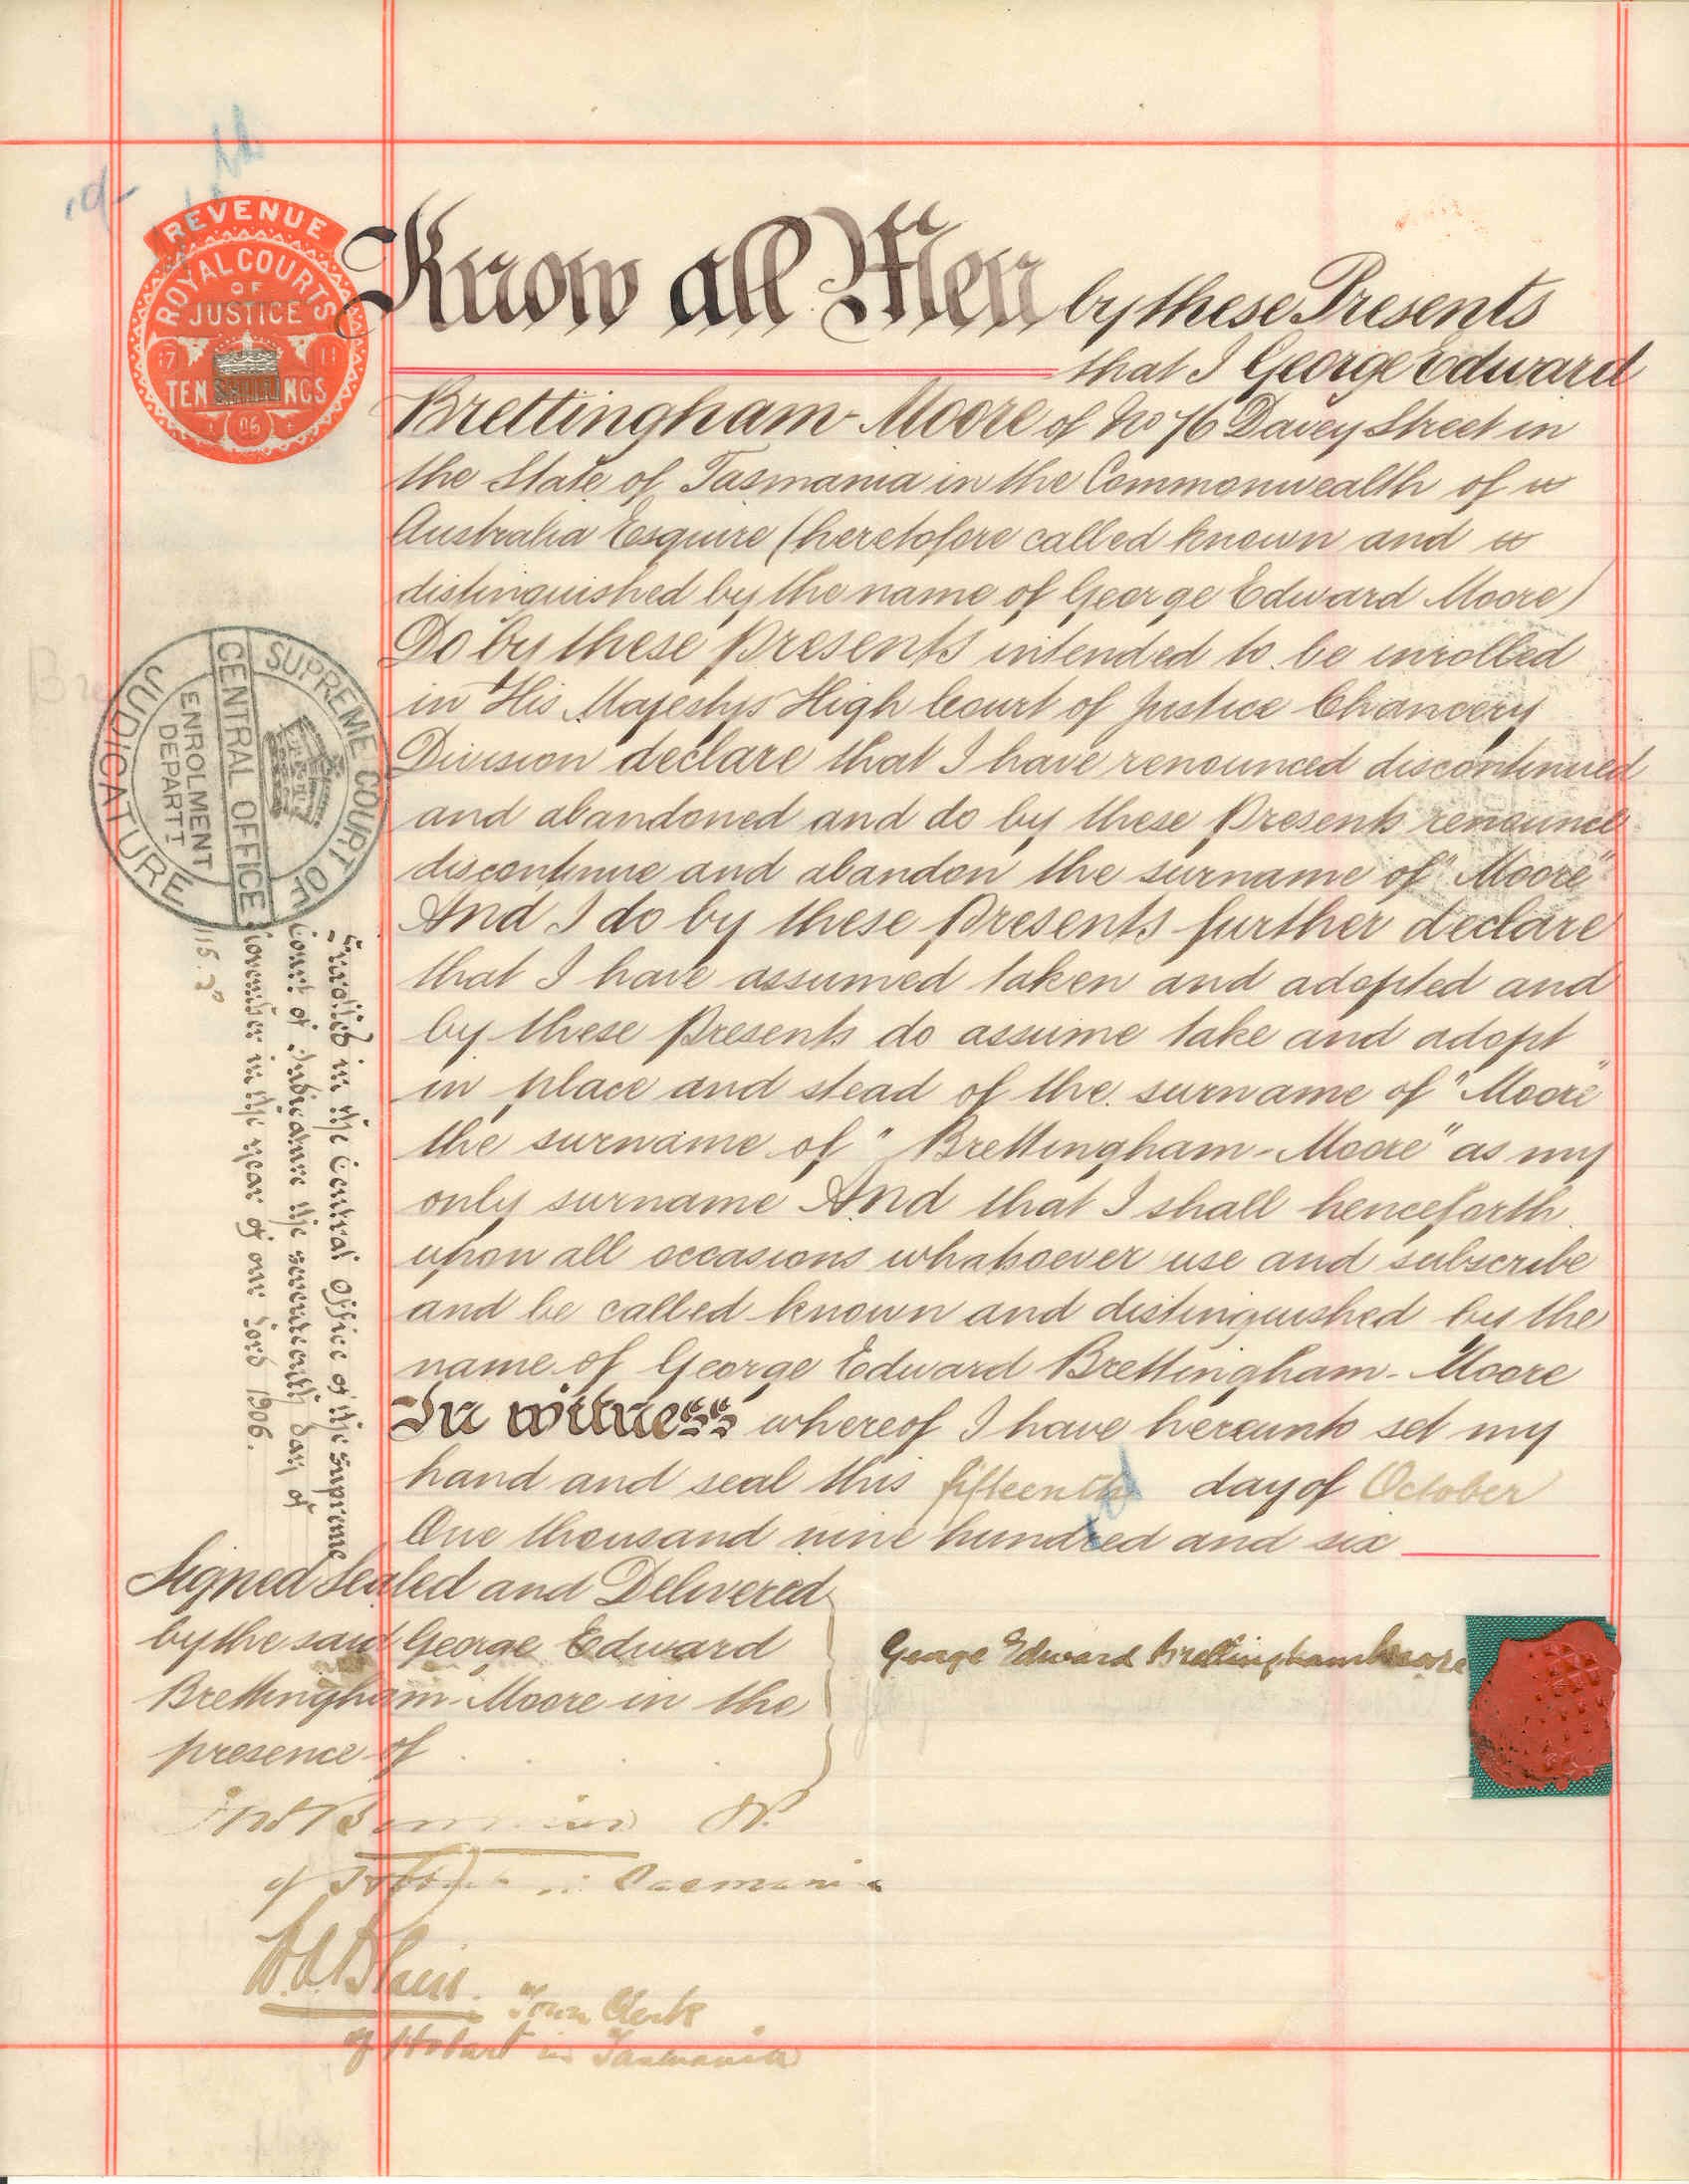 REVENUE
ROYAL COURTS
OF
JUSTICE
17 11
TEN SHILLINGS
06
Know all Men by these Presents
that I George Edward
Brettingham-Moore of No 76 Davey Street in
the State of Tasmania in the Commonwealth of
Australia Esquire (heretofore called known and
distinguished by the name of George Edward Moore)
Do by these Presents intended to be inrolled
in His Majestys High Court of Justice Chancery
Division declare that I have renounced discontinued
and abandoned and do by these Presents renounce
discontinue and abandon the surname of "Moore"
And I do by these Presents further declare
that I have assumed taken and adopted and
by these Presents do assume take and adopt
in place and stead of the surname of "Moore"
the surname of "Brettingham-Moore" as my
only surname And that I shall henceforth
upon all occasions whatsoever use and subscribe
and be called known and distinguished by the
name of George Edward Brettingham-Moore
In witness whereof I have hereunto set my
hand and seal this fifteenth day of October
One thousand nine hundred and six
SUPREME COURT OF
JUDICATURE
CENTRAL OFFICE
ENROLMENT
DEPARTT
Enrolled in the Central Office of the Supreme
Court of Judicature the seventeenth day of
November in the year of our Lord 1906.
Signed Sealed and Delivered
by the said George Edward
Brettingham-Moore in the
presence of
George Edward Brettingham Moore
of in Tasmania
Town Clerk
of Hobart in Tasmania